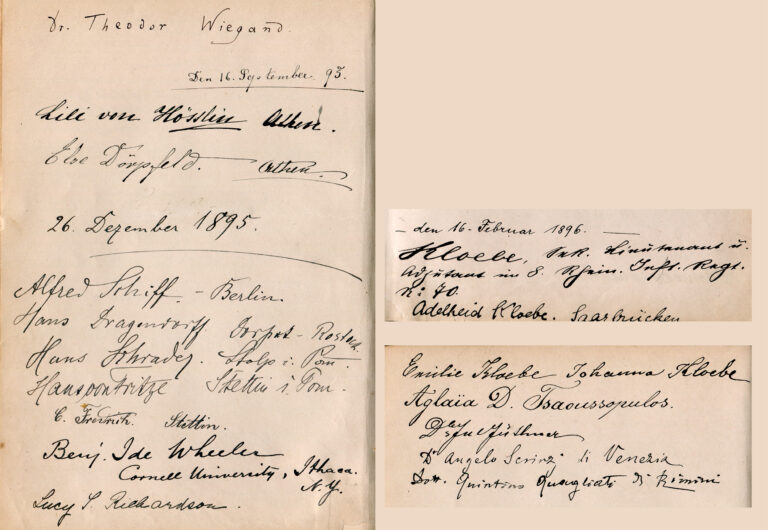 Dr. Theodor Wiegand.
Den 16. September. 93.
Lili von Hösslin Athen.
Else Dörpfeld. Athen.
26. Dezember 1895.
Alfred Schiff. – Berlin.
Hans Dragendorff Dorpat - Rostock.
Hans Schrader. Stolp i. Pom.
Hans von Fritze Stettin i. Pom.
C. Fredrich. Stettin.
Benj. Ide Wheeler
Cornell University, Ithaca.
N.Y.
Lucy S. Richardson.
– den 16. Februar 1896. –
Kloebe, Lieutenant u.
Adjutant im 8. Rhein. Inft. Regt.
N: 70.
Adelheid Kloebe. Saarbrücken
Emilie Kloebe Johanna Kloebe
Aglaia D. Tsaoussopulos.
Dr Jul Jüthner
Dr Angelo Scrinzi di Venezia
Dott. Quintino Quagliati di Rimini